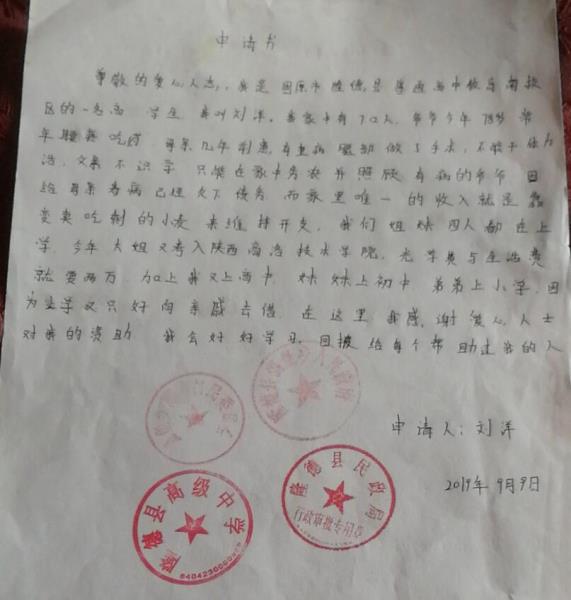 申请书
尊敬的爱心人士，我是固原市隆德县
区的一名高 学生 我叫刘洋。我家中有7口人，爷爷今年78岁 常
年 吃药，母亲几年前患有重病 做了手术，不能干体力
活，父亲不识字 只能在家中务农并照顾有病的爷爷 因
给母亲看病已经欠下债务 而家里唯一的收入就是靠
变卖吃剩的小麦来维持开支，我们姐妹四人都在上
学，今年大姐又考入陕西 技术学院，光学费与生活费
就要两万，加上我又上高中 妹妹上初中 弟弟上小学，因
为 学又只好向亲戚去借 在这里 我感谢爱心人士
对我的资助 我会好好学习，回报给每个帮助过我的人
申请人：刘洋
2019年9月9日
隆德县高级中学
6404230000
隆德县民政局
行政审批专用章